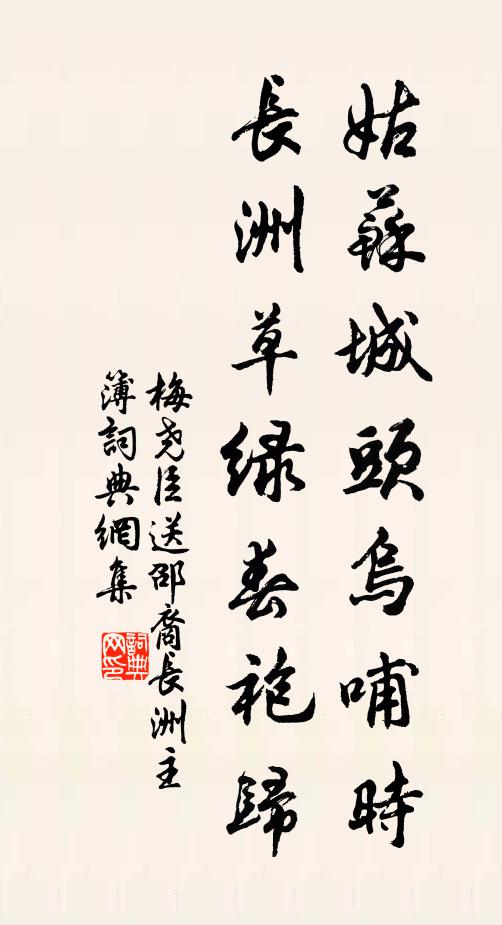 姑蘇城頭烏哺時
長洲草緑春袍歸
梅堯臣送邵裔長洲主
簿詞典網集
詞典
网印